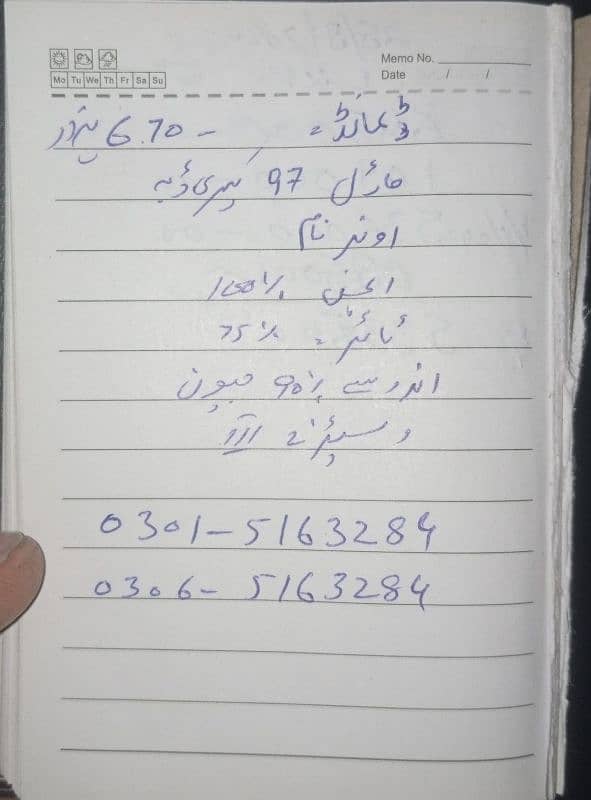 Memo No.
Mo Tu We Th Fr Sa Su
Date / /
ڈیمانڈ = 6.70 ہزار
ماڈل 97 کیری ڈبہ
اونر نام
انجن 100%
ٹائر = 75%
اندر سے 90% جینون
0301-5163284
0306-5163284